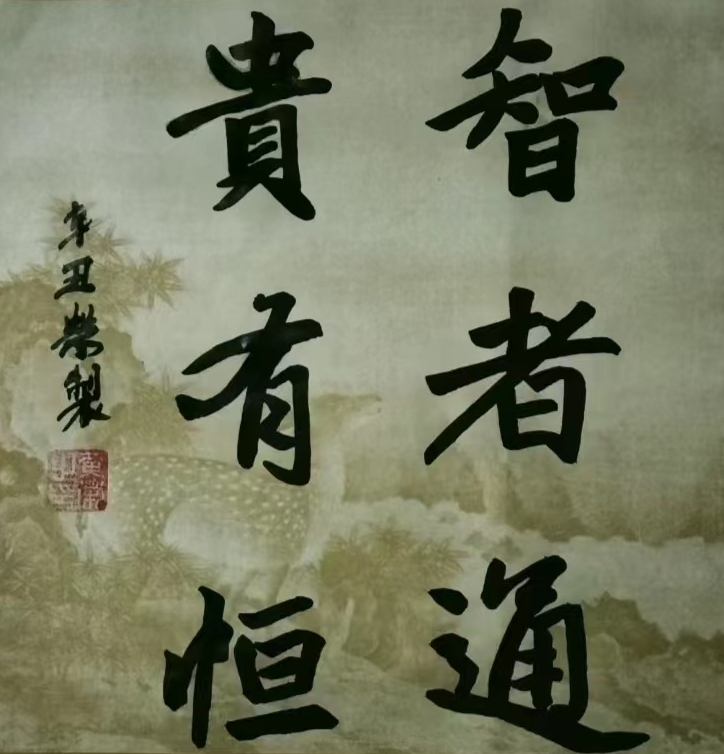 智者通
貴有恒
辛丑榮製